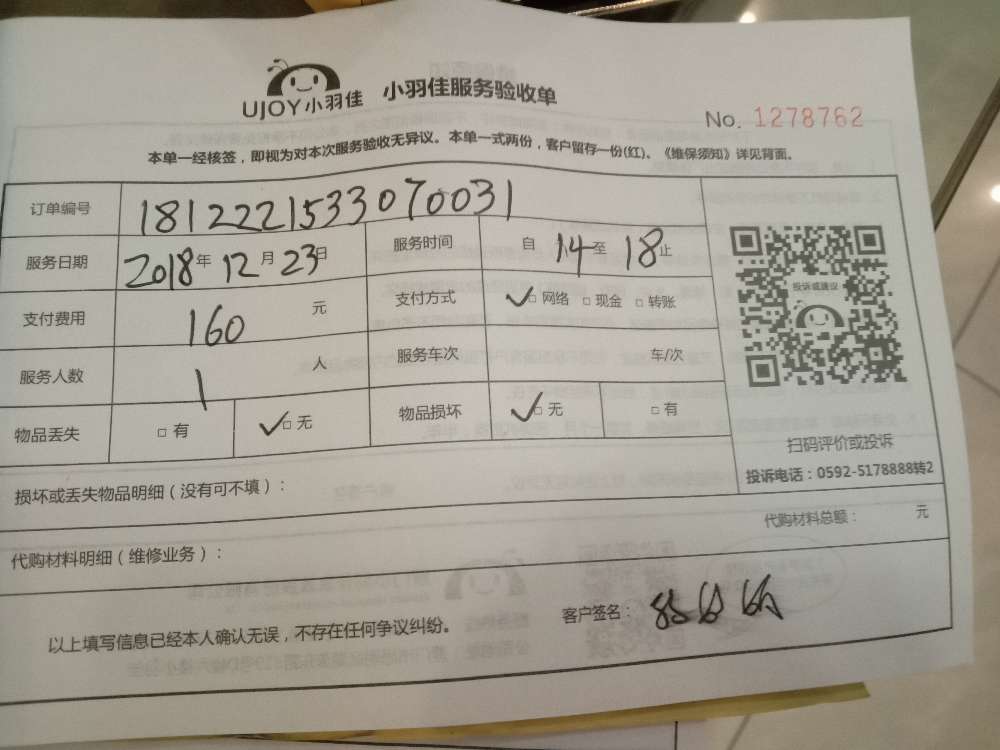 UJOY小羽佳 小羽佳服务验收单
No. 1278762
本单一经核签，即视为对本次服务验收无异议。本单一式两份，客户留存一份(红)、《维保须知》详见背面。
订单编号 1812221533070031
服务日期 2018年12月23日 服务时间 自14至18止
支付费用 160元 支付方式 ✓□网络 □现金 □转账
服务人数 1人 服务车次 车/次
物品丢失 □有 ✓□无 物品损坏 ✓□无 □有
投诉或建议
扫码评价或投诉
投诉电话：0592-5178888转2
损坏或丢失物品明细（没有可不填）：
代购材料总额： 元
代购材料明细（维修业务）：
以上填写信息已经本人确认无误，不存在任何争议纠纷。 客户签名：